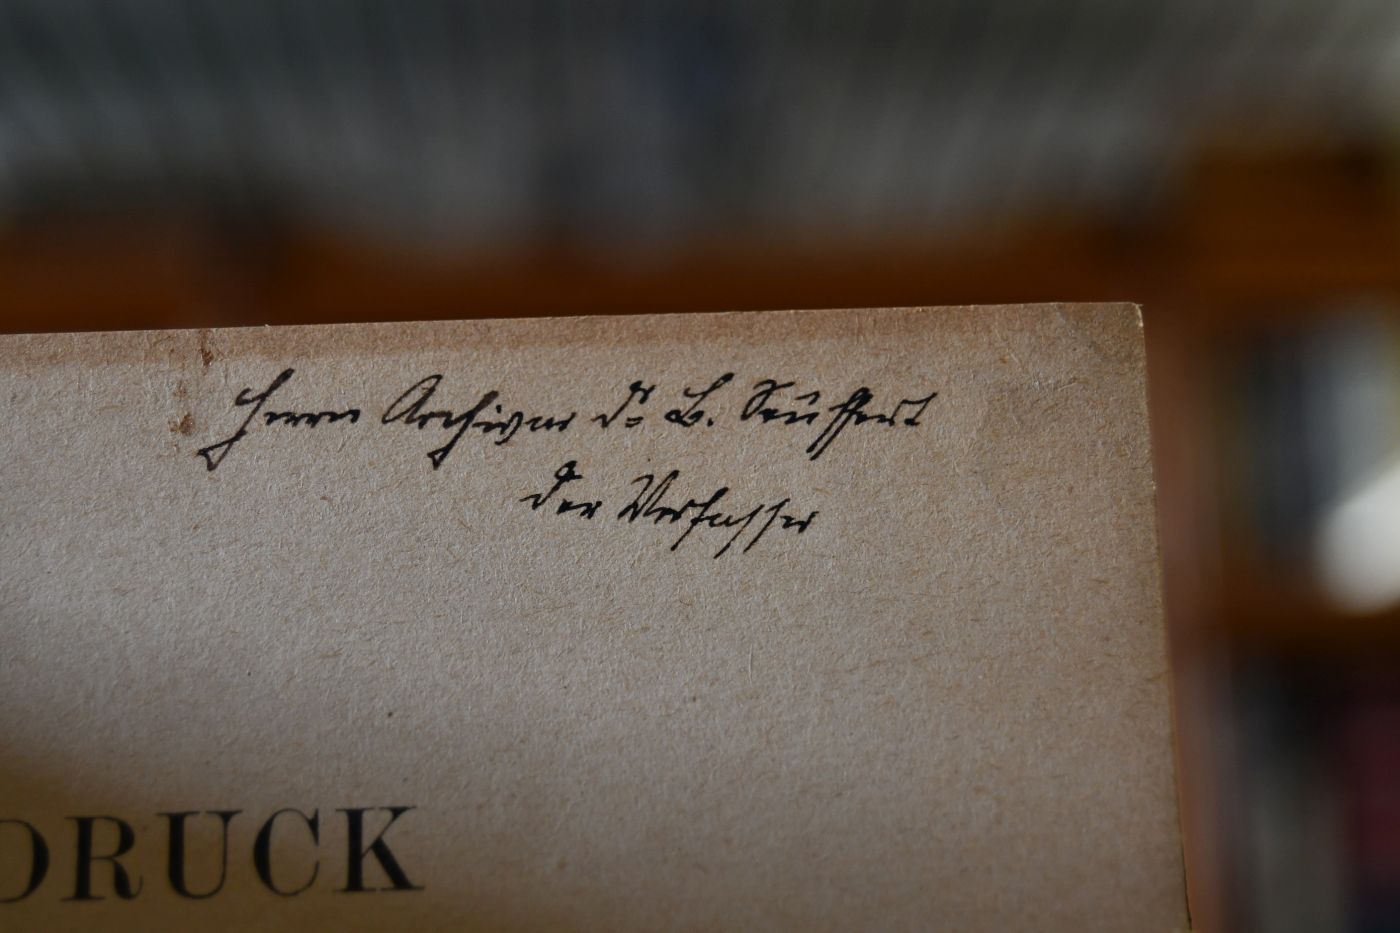 Herrn Archivar Dr. B. Seuffert
der Verfasser
DRUCK